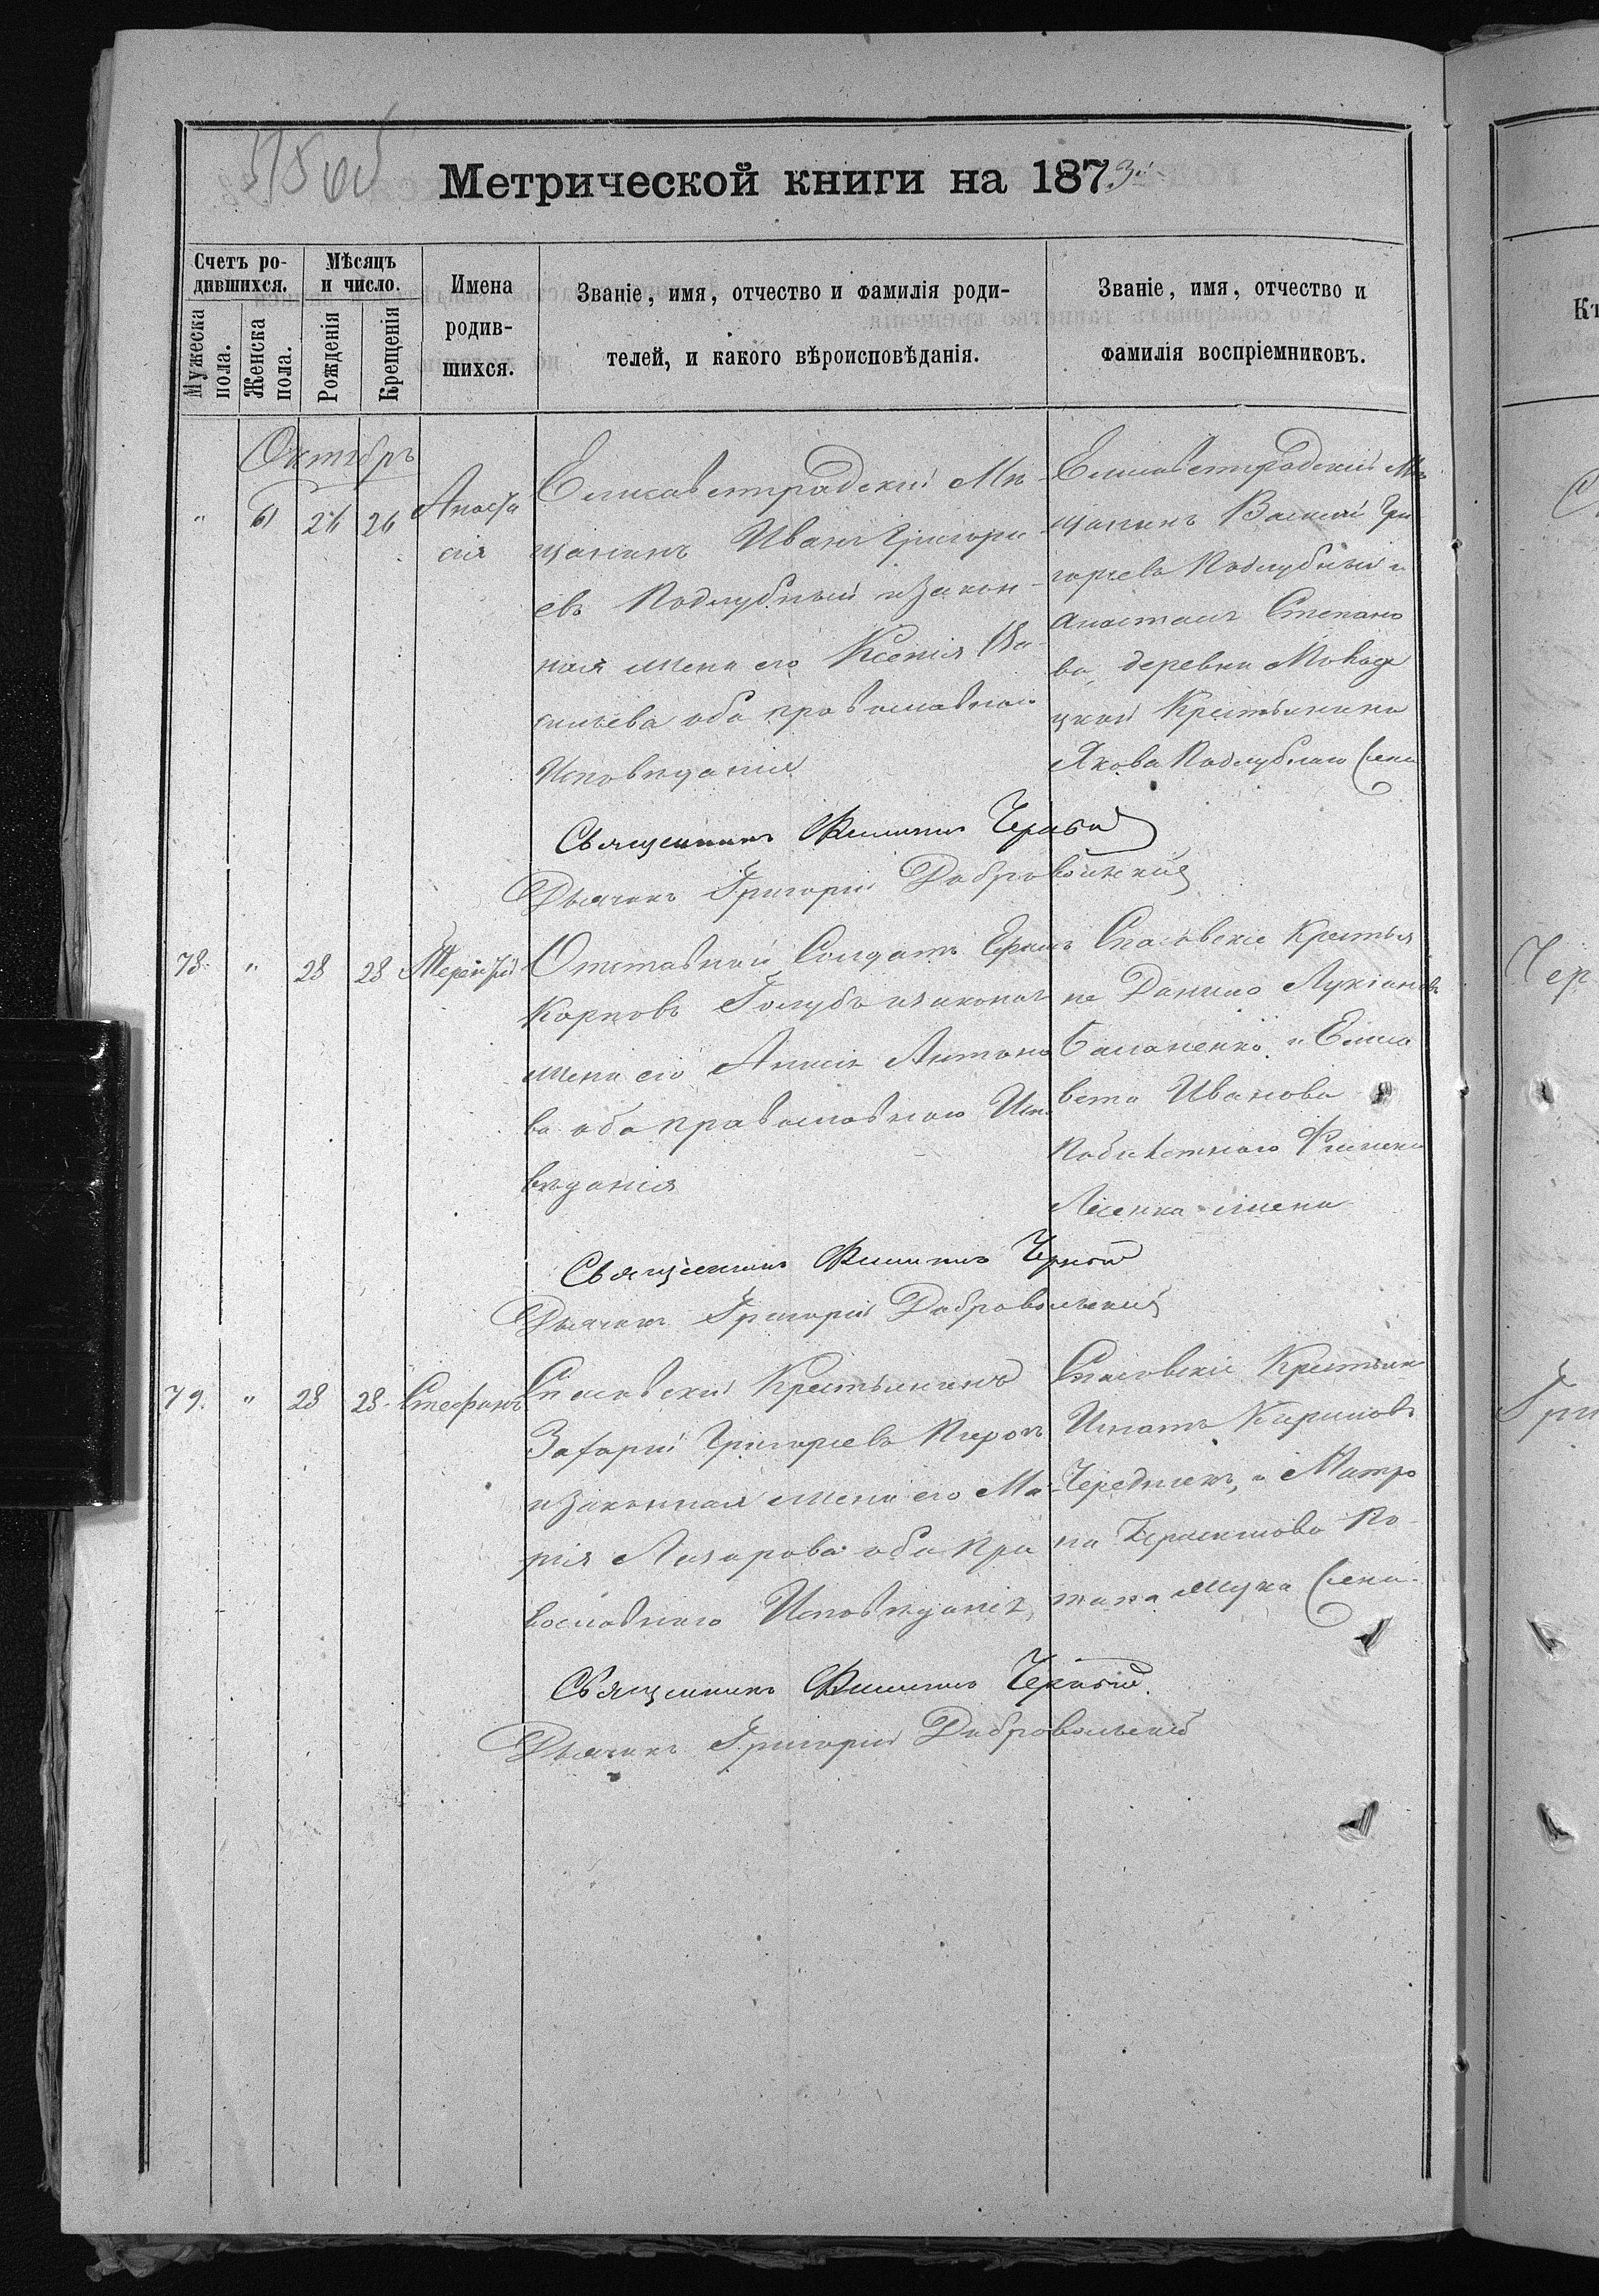 Метрической книги на 1873
Счетъ ро-
дившихся.
Мѣсяцъ
и число.
Мужеска
пола.
Женска
пола.
Рожденія
Крещенія
Имена
родив-
шихся.
Званіе, имя, отчество и фамилія роди-
телей, и какого вѣроисповѣданія.
Званіе, имя, отчество и
фамилія воспріемниковъ.
Октябрь
" 61 26 26
Анаста
сія
Елисаветградскій Мѣ-
щанинъ Иванъ Григорь
евъ Поддубный и закон-
ная жена его Ксенія Ва-
сильева оба православнаго
Исповѣданія
Елисаветградскій Мѣ
щанинъ Василій Гри
горьевъ Поддубный и
Степано
ва, деревни
Крестьянина
Якова Поддубнаго жена
Священникъ Филиппъ Черный
Дьячекъ Григорій Добровольскій
78. " 28 28 Терентій
Отставной Солдатъ
Карповъ Голубъ и законая
жена его Анисія Антоно
ва оба православнаго Испо
вѣданія
Спасовскіе Крестья
не Данило Лукіановъ
и Елиса
вета Иванова
жена
Священникъ Филиппъ Черный
Дьячекъ Григорій Добровольскій
79. " 28 28 Стефанъ
Спасовскій Крестьянинъ
Захарій Григорьевъ
и законная жена его Ма-
рія Лазарова оба пра
вославнаго Исповѣданія
Спасовскіе Крестьяне
Игнатъ Кириловъ
Чередникъ, и Матро
на
жена
Священникъ Филиппъ Черный
Дьячекъ Григорій Добровольскій